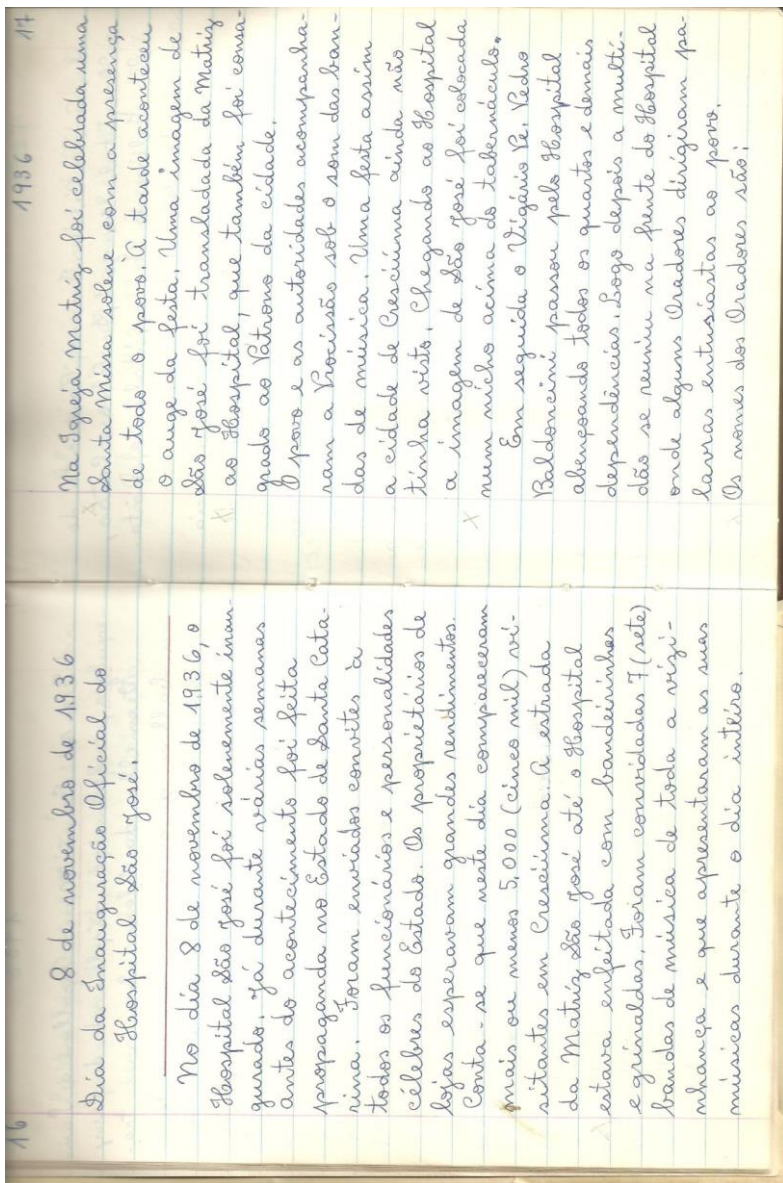 16
8 de novembro de 1936
Dia da Inauguração Oficial do
Hospital São José.
No dia 8 de novembro de 1936, o
Hospital São José foi solenemente inau-
gurado. Já durante várias semanas
antes do acontecimento foi feita
propaganda no Estado de Santa Cata-
rina. Foram enviados convites à
todos os funcionários e personalidades
célebres do Estado. Os proprietários de
lojas esperavam grandes rendimentos.
Conta-se que neste dia compareceram
mais ou menos 5.000 (cinco mil) vi-
sitantes em Cresciúma. A estrada
da Matriz São José até o Hospital
estava enfeitada com bandeirinhas
e grinaldas. Foram convidadas 7 (sete)
bandas de música de toda a vizi-
nhança e que apresentaram as suas
músicas durante o dia inteiro.
1936 17
Na Igreja Matriz foi celebrada uma
Santa Missa solene com a presença
de todo o povo. À tarde aconteceu
o auge da festa. Uma imagem de
São José foi transladada da Matriz
ao Hospital, que também foi consa-
grado ao Patrono da cidade.
O povo e as autoridades acompanha-
ram a Procissão sob o som das ban-
das de música. Uma festa assim
a cidade de Cresciúma ainda não
tinha visto. Chegando ao Hospital
a imagem de São José foi colocada
num nicho acima do tabernáculo.
Em seguida o Vigário Pe. Pedro
Baldoncini passou pelo Hospital
abençoando todos os quartos e demais
dependências. Logo depois a multi-
dão se reuniu na frente do Hospital
onde alguns Oradores dirigiram pa-
lavras entusiastas ao povo.
Os nomes dos Oradores são: